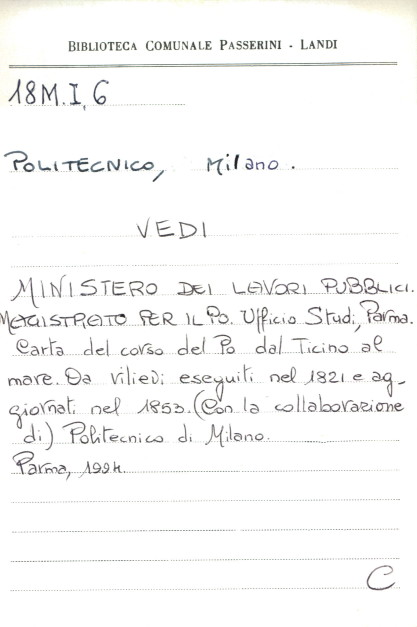 BIBLIOTECA COMUNALE PASSERINI - LANDI
18M.I,6
POLITECNICO, Milano.
VEDI
MINISTERO DEI LAVORI PUBBLICI.
MAGISTRATO PER IL PO. Ufficio Studi, Parma.
Carta del corso del Po dal Ticino al
mare. Da rilievi eseguiti nel 1821 e ag-
giornati nel 1853. (Con la collaborazione
di) Politecnico di Milano.
Parma, 1994.
C